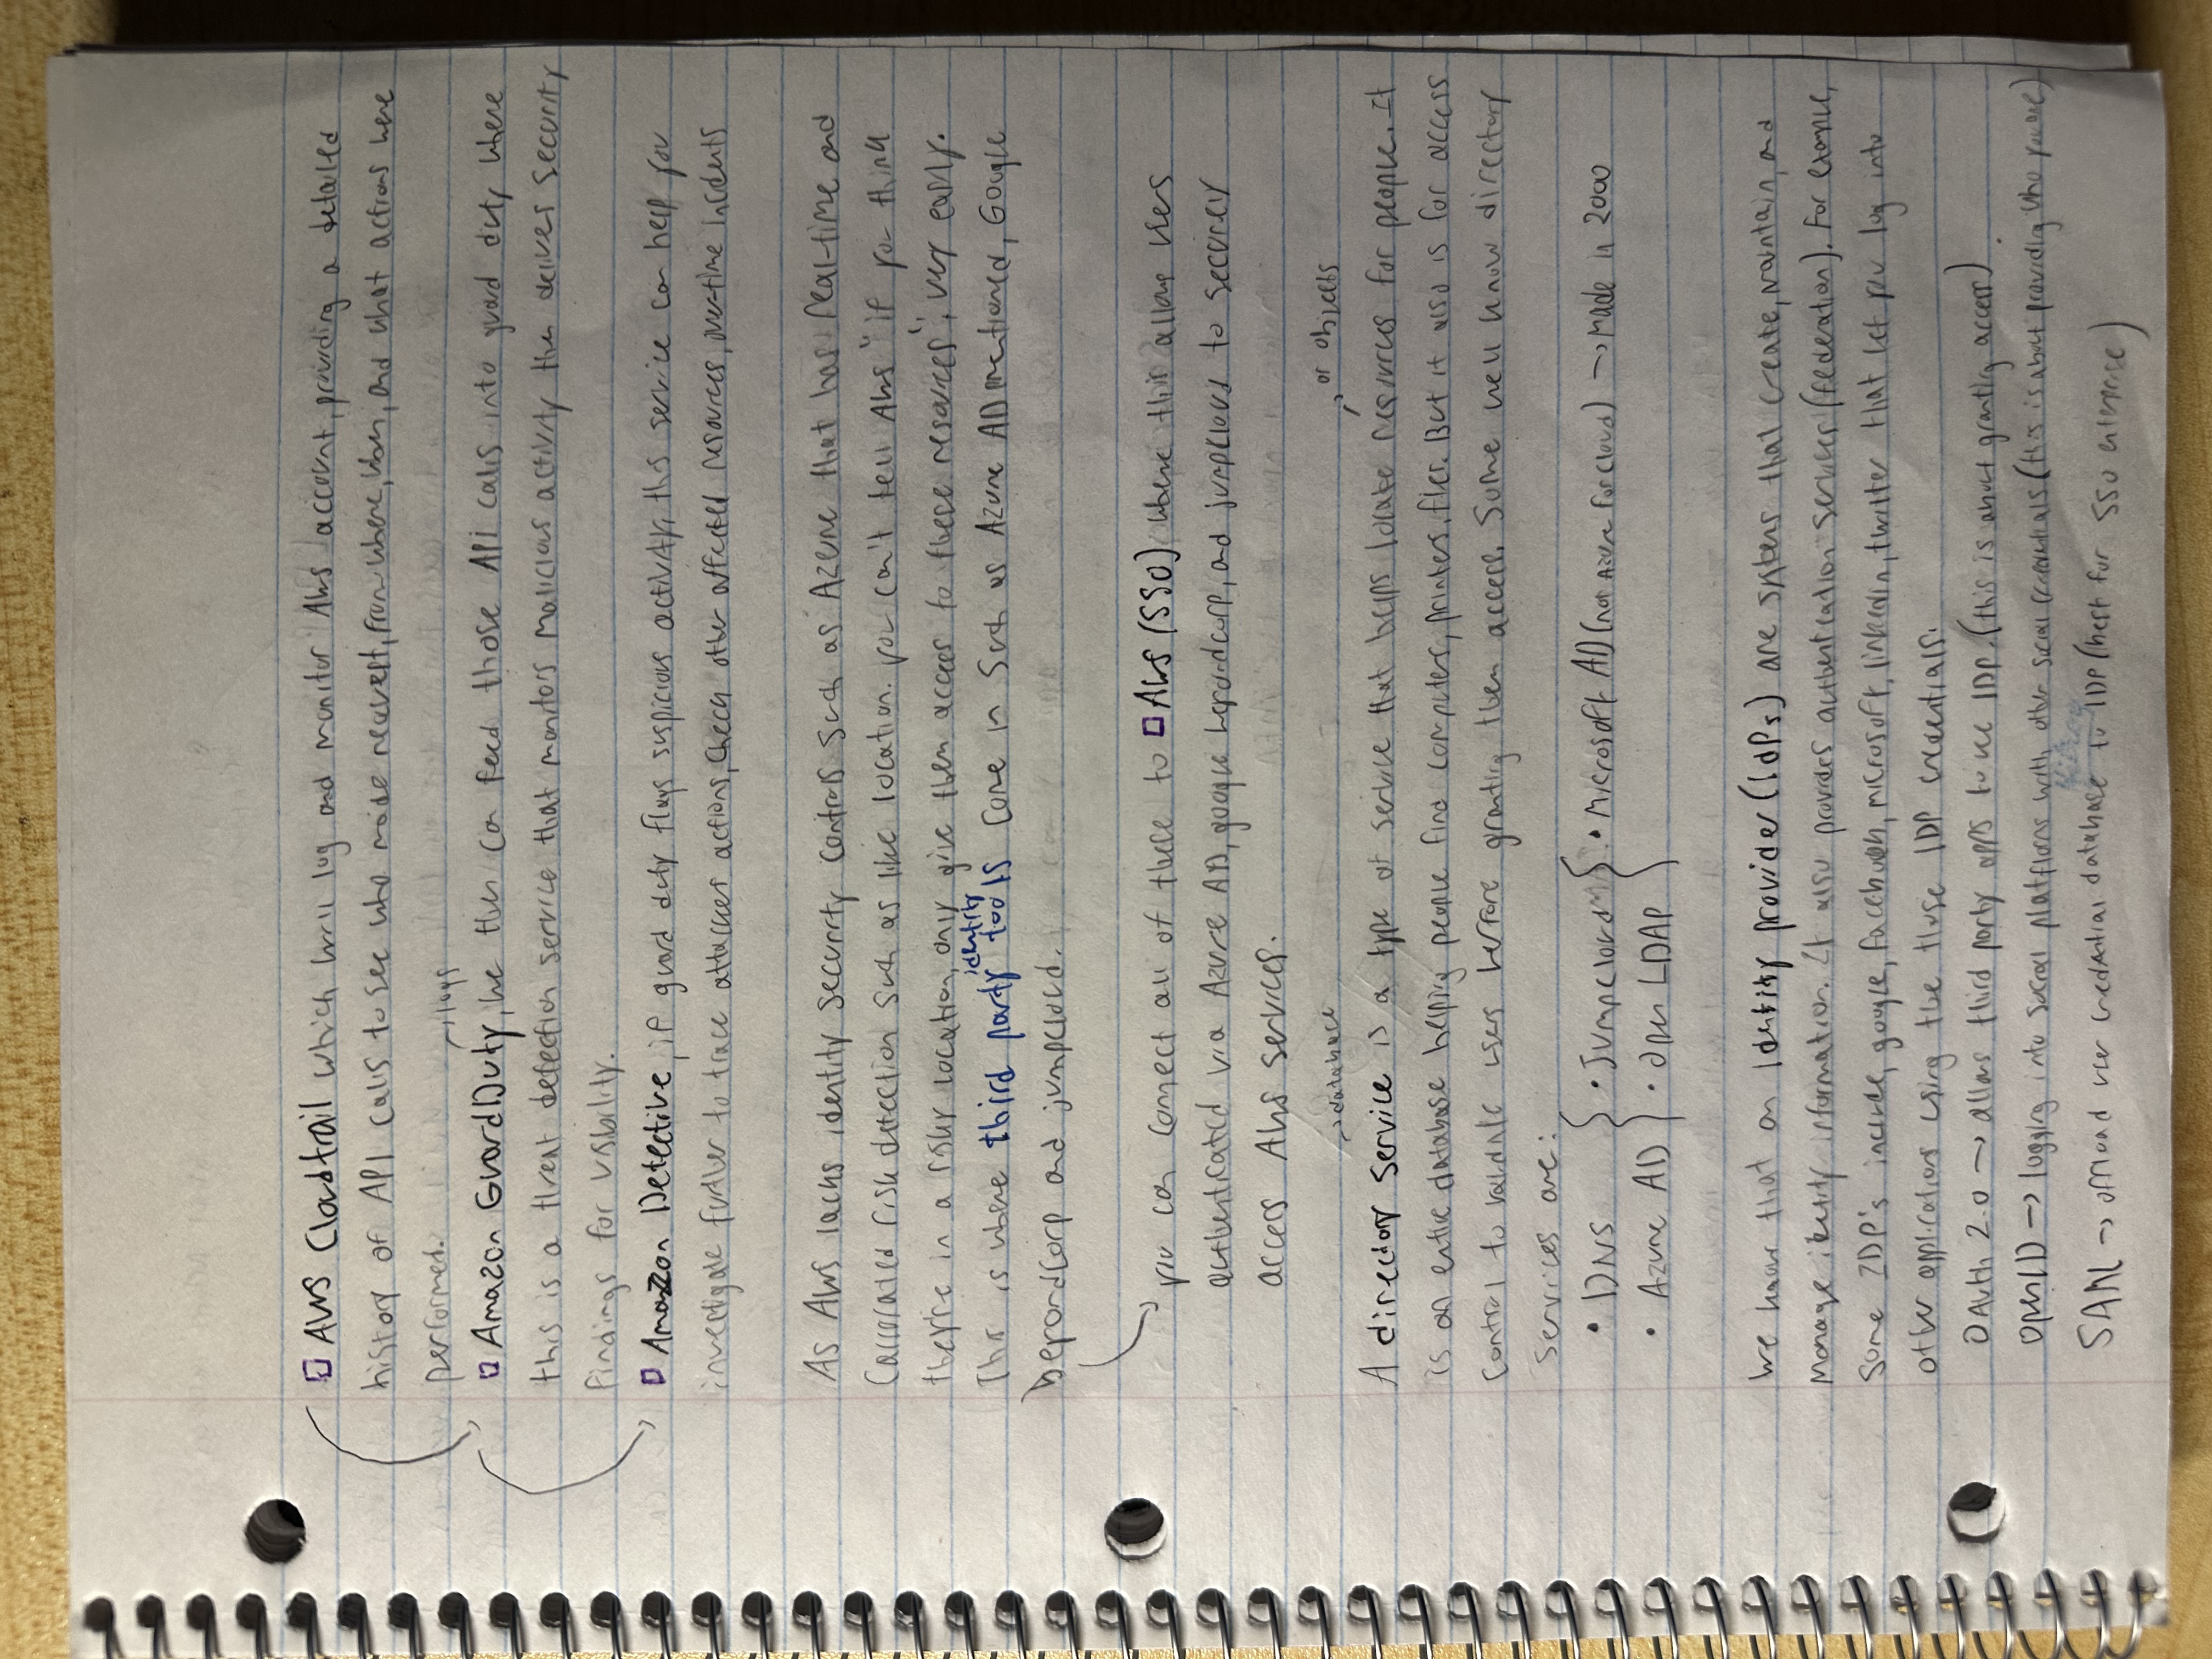 AWS Cloudtrail which will log and monitor AWS account, providing a detailed
history of API calls to see who made request, from where, when, and what actions were
performed.
→ logs
Amazon GuardDuty, we then can feed those API calls into guard duty where
this is a threat detection service that monitors malicious activity then delives security
findings for visibility.
Amazon Detective, if guard duty flags suspicious activity, this service can help you
investigate further to trace attackers actions, check other affected resources, over-time incidents
As AWS lacks identity security controls such as Azure that has real-time and
risk detection such as like location. you can't tell AWS "if you think
they're in a risky location, only give them access to these resources", very easily.
identity
This is where third party tools come in such as Azure AD mentioned, Google
beyondcorp and jumpcloud.
you can connect all of these to AWS (SSO) where this allows users
authenticated via Azure AD, google beyondcorp, and jumpcloud to securely
access AWS services.
→ database → or objects
A directory service is a type of service that helps locate resources for people. It
is an entire database helping people find computers, printers, files. But it also is for access
control to validate users before granting them access. Some well know directory
services are:
• DNS } • Jumpcloud } • Microsoft AD (not Azure for cloud) → Made in 2000
• Azure AD } • Open LDAP }
We know that an Identity provider (IdPs) are systems that create, maintain, and
manage identity information. It also provides authentication services (federation). For example,
some IDP's include, google, facebook, microsoft, linkedin, twitter that let you log into
other applications using the those IDP credentials.
OAuth 2.0 → allows third party apps to use IDP. (this is about granting access)
OpenID → logging into social platforms with other social credentials (this is about providing who you are)
SAML → offload user credential database to IDP (best for SSO enterprise)